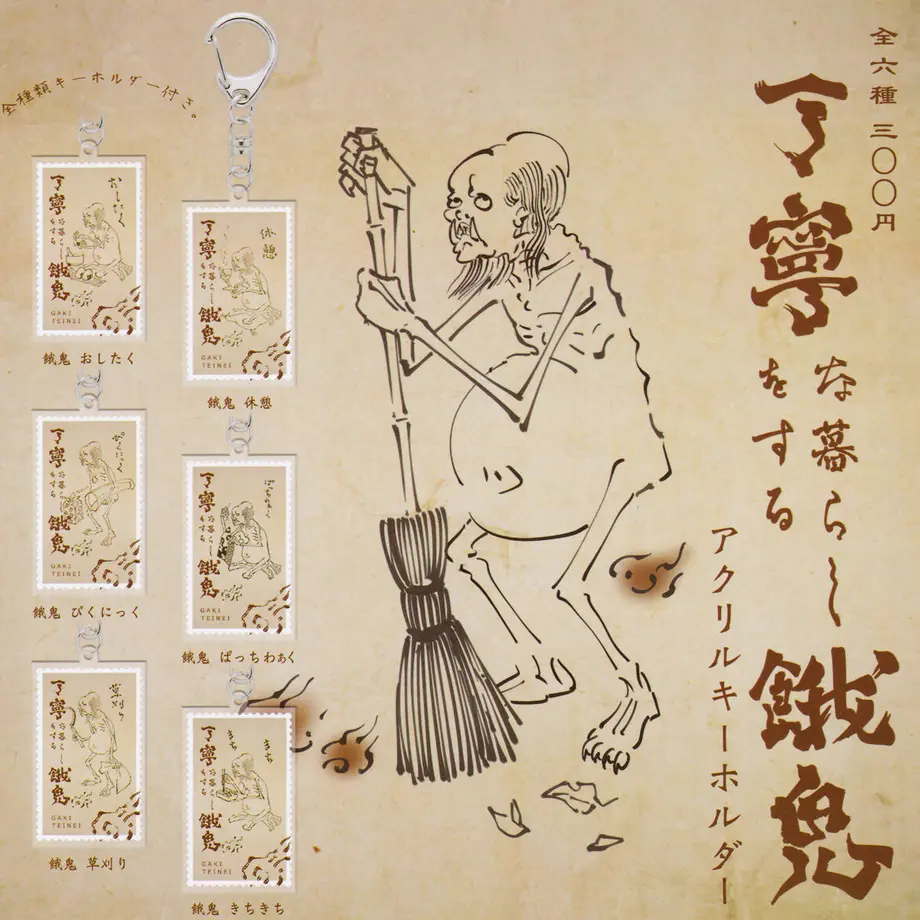 全六種 三〇〇円
丁寧な暮らしをする餓鬼
アクリルキーホルダー
全種類キーホルダー付き。
丁寧な暮らしをする餓鬼
おしたく
GAKI
TEINEI
餓鬼 おしたく
丁寧な暮らしをする餓鬼
休憩
GAKI
TEINEI
餓鬼 休憩
丁寧な暮らしをする餓鬼
ぴくにっく
GAKI
TEINEI
餓鬼 ぴくにっく
丁寧な暮らしをする餓鬼
ぱっちわぁく
GAKI
TEINEI
餓鬼 ぱっちわぁく
丁寧な暮らしをする餓鬼
草刈り
GAKI
TEINEI
餓鬼 草刈り
丁寧な暮らしをする餓鬼
きちきち
GAKI
TEINEI
餓鬼 きちきち